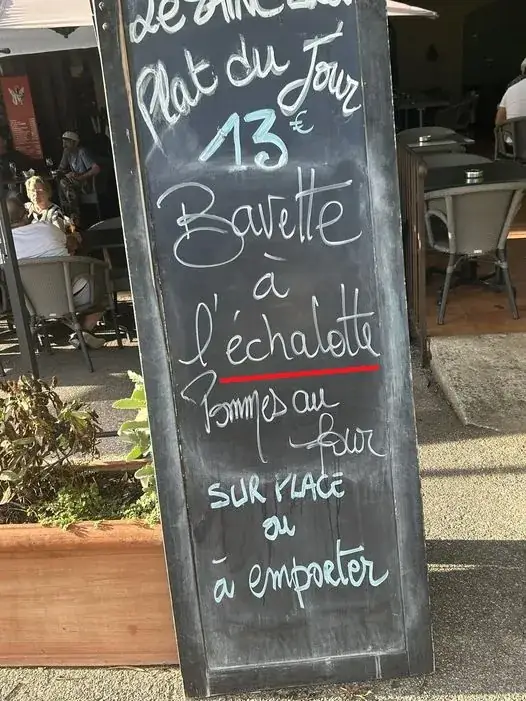 Plat du Jour
13€
Bavette
à
l'échalotte
Pommes au
four
SUR PLACE
ou
à emporter